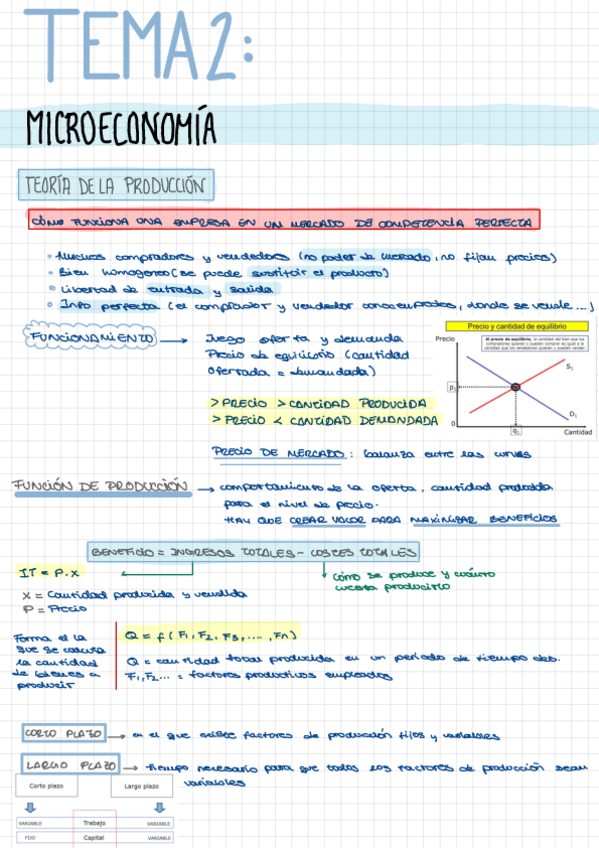 TEMA 2:
MICROECONOMÍA
TEORÍA DE LA PRODUCCIÓN
CÓMO FUNCIONA UNA EMPRESA EN UN MERCADO DE COMPETENCIA PERFECTA
Muchos compradores y vendedores (no poder de mercado, no fijan precios)
Bien homogeneo (se puede sustituir el producto)
Libertad de entrada y salida
Info perfecta (el comprador y vendedor conoce, donde se vende ...)
FUNCIONAMIENTO → Juego oferta y demanda
Precio de equilibrio (cantidad
ofertada = demandada)
> PRECIO > CANTIDAD PRODUCIDA
> PRECIO < CANTIDAD DEMANDADA
Precio y cantidad de equilibrio
Precio
Al precio de equilibrio, la cantidad del bien que los
compradores quieren y pueden comprar es igual a la
cantidad que los vendedores quieren y pueden vender
S₁
P₁
D₁
0
q₁
Cantidad
PRECIO DE MERCADO: balanza entre las curvas
FUNCIÓN DE PRODUCCIÓN → comportamiento de la oferta, cantidad producida
para el nivel de precio.
HAY QUE CREAR VALOR PARA MAXIMIZAR BENEFICIOS
BENEFICIO = INGRESOS TOTALES - COSTES TOTALES
IT = P.X
cómo se produce y cuánto
cuesta producirlo
X = Cantidad producida y vendida
P = Precio
Forma en la
que se calcula
la cantidad
de bienes a
producir
Q = f (F₁, F₂, F₃, ...., Fn)
Q = cantidad total producida en un periodo de tiempo
F₁, F₂ ... = factores productivos empleados
CORTO PLAZO → en el que existe factores de producción fijos y variables
LARGO PLAZO → tiempo necesario para que todos los factores de producción sean
variables
Corto plazo Largo plazo
VARIABLE Trabajo VARIABLE
FIJO Capital VARIABLE